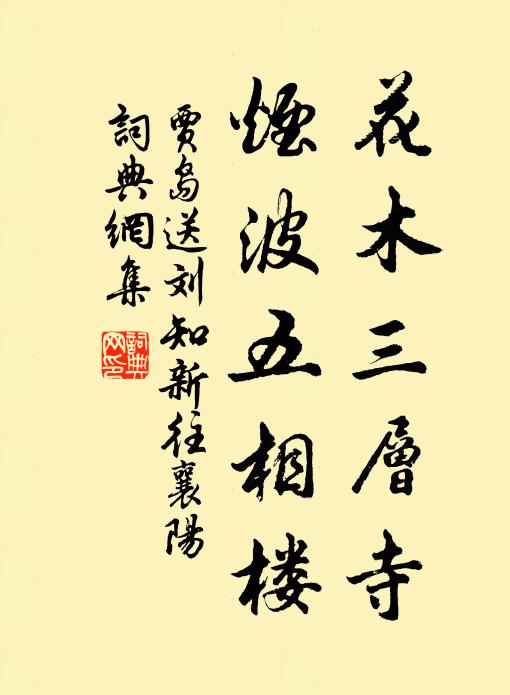 花木三層寺
煙波五相楼
賈島送刘知新往襄陽
詞典網集
詞典网印